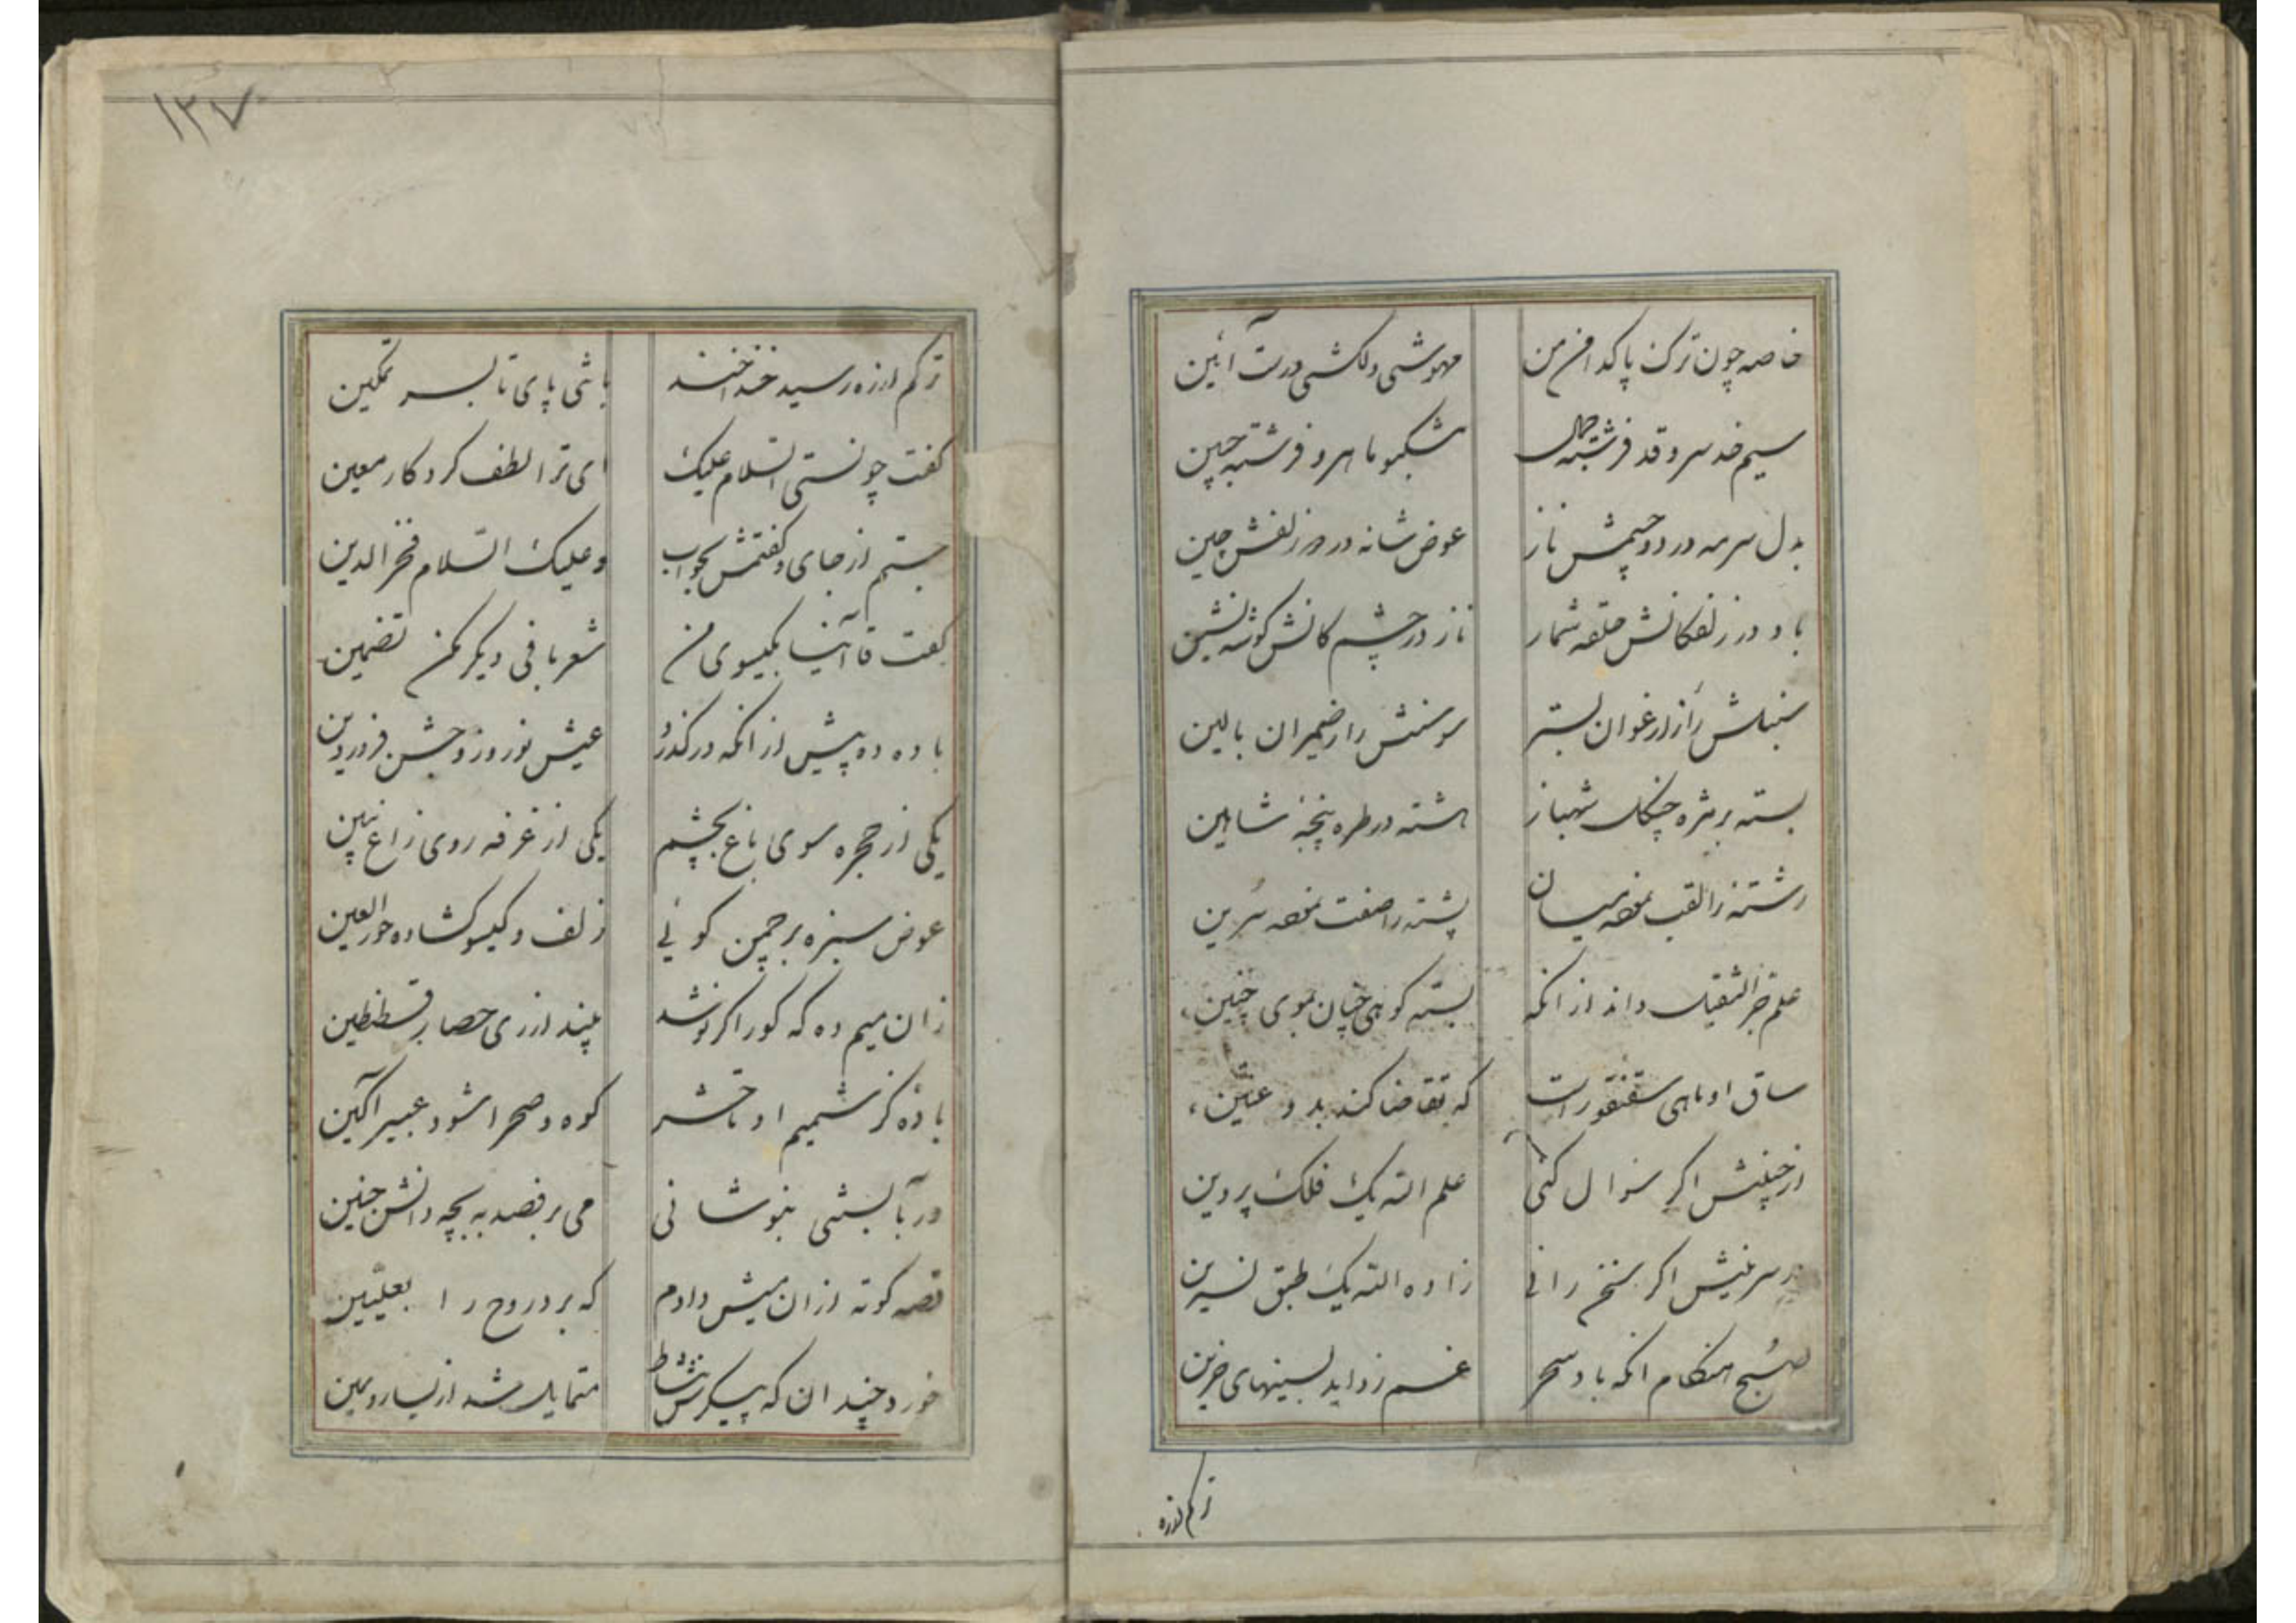 خاصه چون ترک پاکدامن من مهوشی دلکشی درست آئین
سیم خد سرو قد فرشته جمال مشکمو ماهرو فرشته جبین
بدل سرمه در دو چشمش ناز عوض شانه در دو زلفش چین
باد در زلفکانش حلقه شمار ناز در چشمکانش گوشه نشین
سنبلش را ز ارغوان بستر سوسنش را ز ضیمران بالین
بسته بر مژه چنگل شهباز هشته در طره پنجهٔ شاهین
رشته را لقب نموده میان پشته را صفت نموده سرین
علم جر الثقیل داند از انکه بسته کوهی چنان بموی چنین
ساق او ماهی سقنقور است که تقاضا کند بدو عنین
از جبینش اگر سئوال کنی علم الله یک فلک پروین
در سرینش اگر سخن رانی زاده الله یک طبق نسرین
صبح هنگام انکه باد سحر غم زداید بسینهای حزین
ترکم از ره
۱۳۷
ترکم از ره رسید خنداخند باشی پای تا بسر تمکین
گفت چونستی السلام علیک ای ترا لطف کردکار معین
جستم از جای و گفتمش بجواب وعلیک السلام فخرالدین
گفت قاآنیا بگیسوی من شعر بافی دیگر مکن تضمین
باده ده پیش از انکه درگذرد عیش نوروز و جشن فروردین
یکی از حجره سوی باغ بچشم یکی از غرفه روی زاغ ببین
عوض سبزه بر چمن گوئی زلف و گیسو گشاده حورالعین
زان میم ده که کور اگر نوشد بیند از ری حصار قسطنطین
بادهٔ کز شمیم او تا حشر کوه و صحرا شود عبیر آگین
ور بآبستنی بنوشانی می برقصد به بچه دانش جنین
قصه کوته ازان میش دادم که برد روح را بعلیین
خورد چندان که پیکرش ز نشاط متمایل شد از یسار و یمین